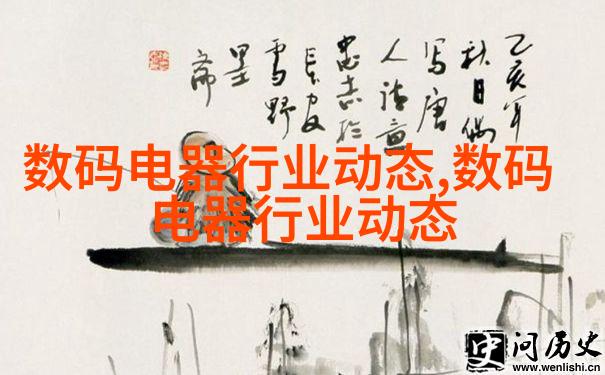 数码电器行业动态,数码
电器行业动态
乙亥年
秋日偶
写唐
人诗意
雪野
墨
斋
史问历史
www.wenlishi.cn